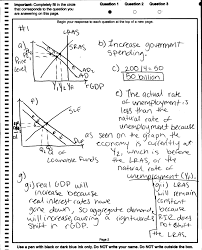 Important: Completely fill in the circle
that corresponds to the question you
are answering on this page.
Question 1
Question 2
Question 3
Begin your response to each question at the top of a new page.
#1
a)
Price
Level
LRAS
SRAS
AD
rGDP
b) Increase government
spending.
c) 200/4=50
50 billion
e) The actual rate
of unemployment is
less than the
natural rate of
unemployment because
as seen on the graph the
economy is currently at
Y2, which is before
the LRAS, or the
natural rate of
unemployment (Y1).
f)
SLF
Q of
Loanable Funds
g)
gi) real GDP will
increase because
real interest rates have
gone down, so aggregate demand
will increase, causing a rightward
shift in rGDP.
gii) LRAS
will remain
constant
because
RIR does
no shift
LRAS.
Page 2
Use a pen with black or dark blue ink only. Do NOT write your name. Do NOT write outside the box.